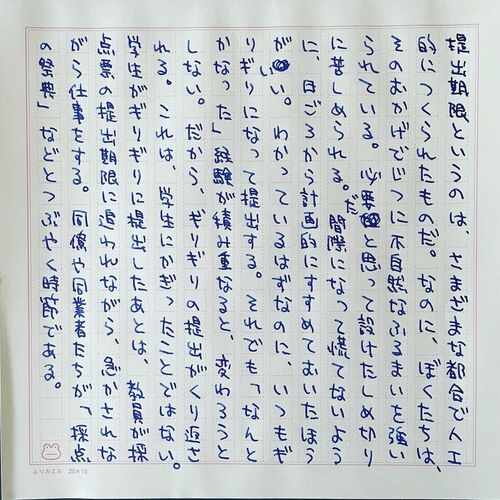 提出期限というのは、さまざまな都合で人工
的につくられたものだ。なのに、ぼくたちは、
そのおかげでじつに不自然なふるまいを強い
られている。必要だと思って設けたしめ切り
に苦しめられる。間際になって慌てないよう
に、日ごろから計画的にすすめておいたほう
がいい。わかっているはずなのに、いつもぎ
りぎりになって提出する。それでも「なんと
かなった」経験が積み重なると、変わろうと
しない。だから、ぎりぎりの提出がくり返さ
れる。これは、学生にかぎったことではない。
学生がぎりぎりに提出したあとは、教員が採
点票の提出期限に追われながら、急かされな
がら仕事をする。同僚や同業者たちが「採点
の祭典」などとつぶやく時節である。
ふりカエル 20×15